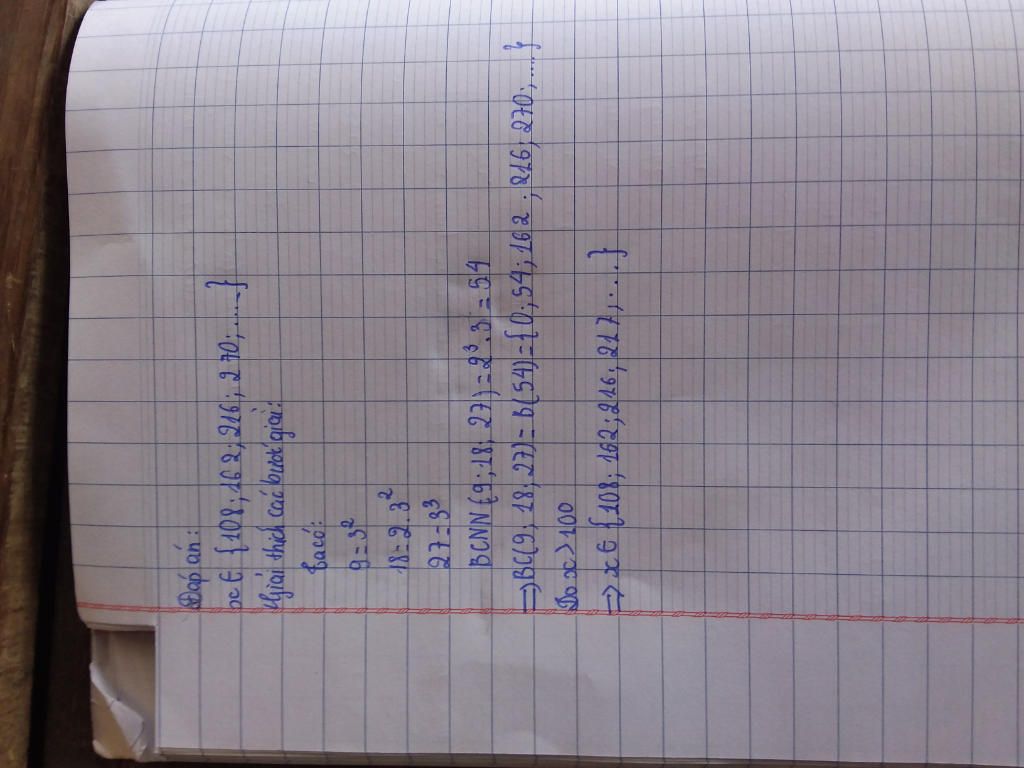 Đáp án:
x ∈ {108; 162; 216; 270; .....}
Giải thích các bước giải:
Ta có:
9 = 3²
18 = 2.3²
27 = 3³
BCNN (9; 18; 27) = 2³.3 = 54
=> BC(9; 18; 27) = B(54) = {0; 54; 162; 216; 270; ....}
Do x > 100
=> x ∈ {108; 162; 216; 217; ....}